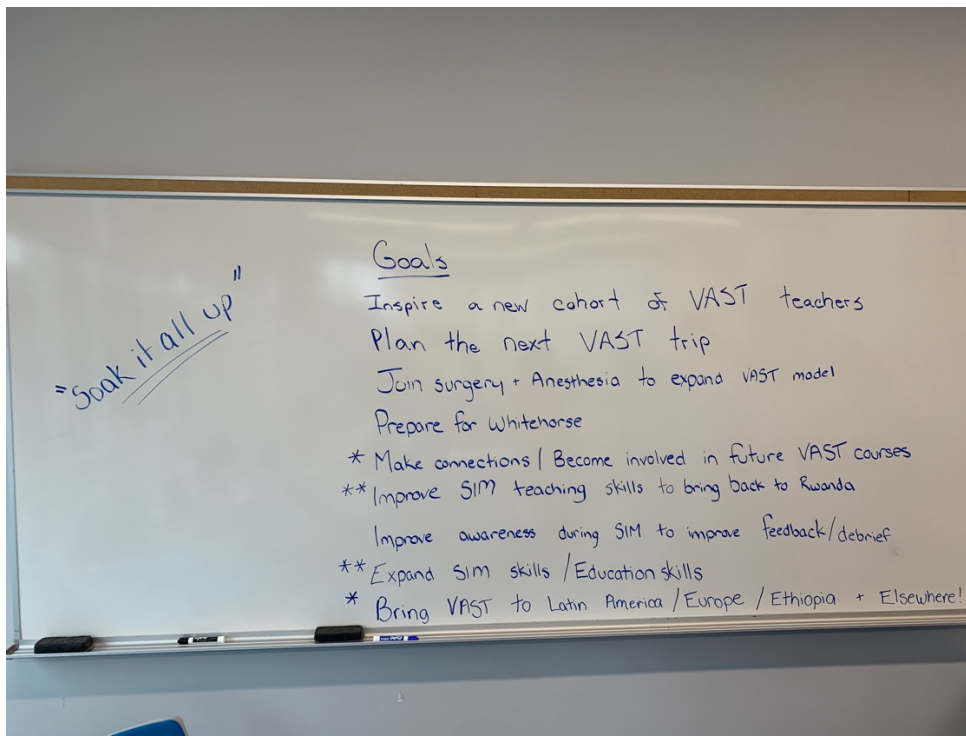 "Soak it all up"
Goals
Inspire a new cohort of VAST teachers
Plan the next VAST trip
Join surgery + Anesthesia to expand VAST model
Prepare for Whitehorse
* Make connections / Become involved in future VAST courses
** Improve SIM teaching skills to bring back to Rwanda
Improve awareness during SIM to improve feedback/debrief
** Expand SIM skills / Education skills
* Bring VAST to Latin America / Europe / Ethiopia + Elsewhere!